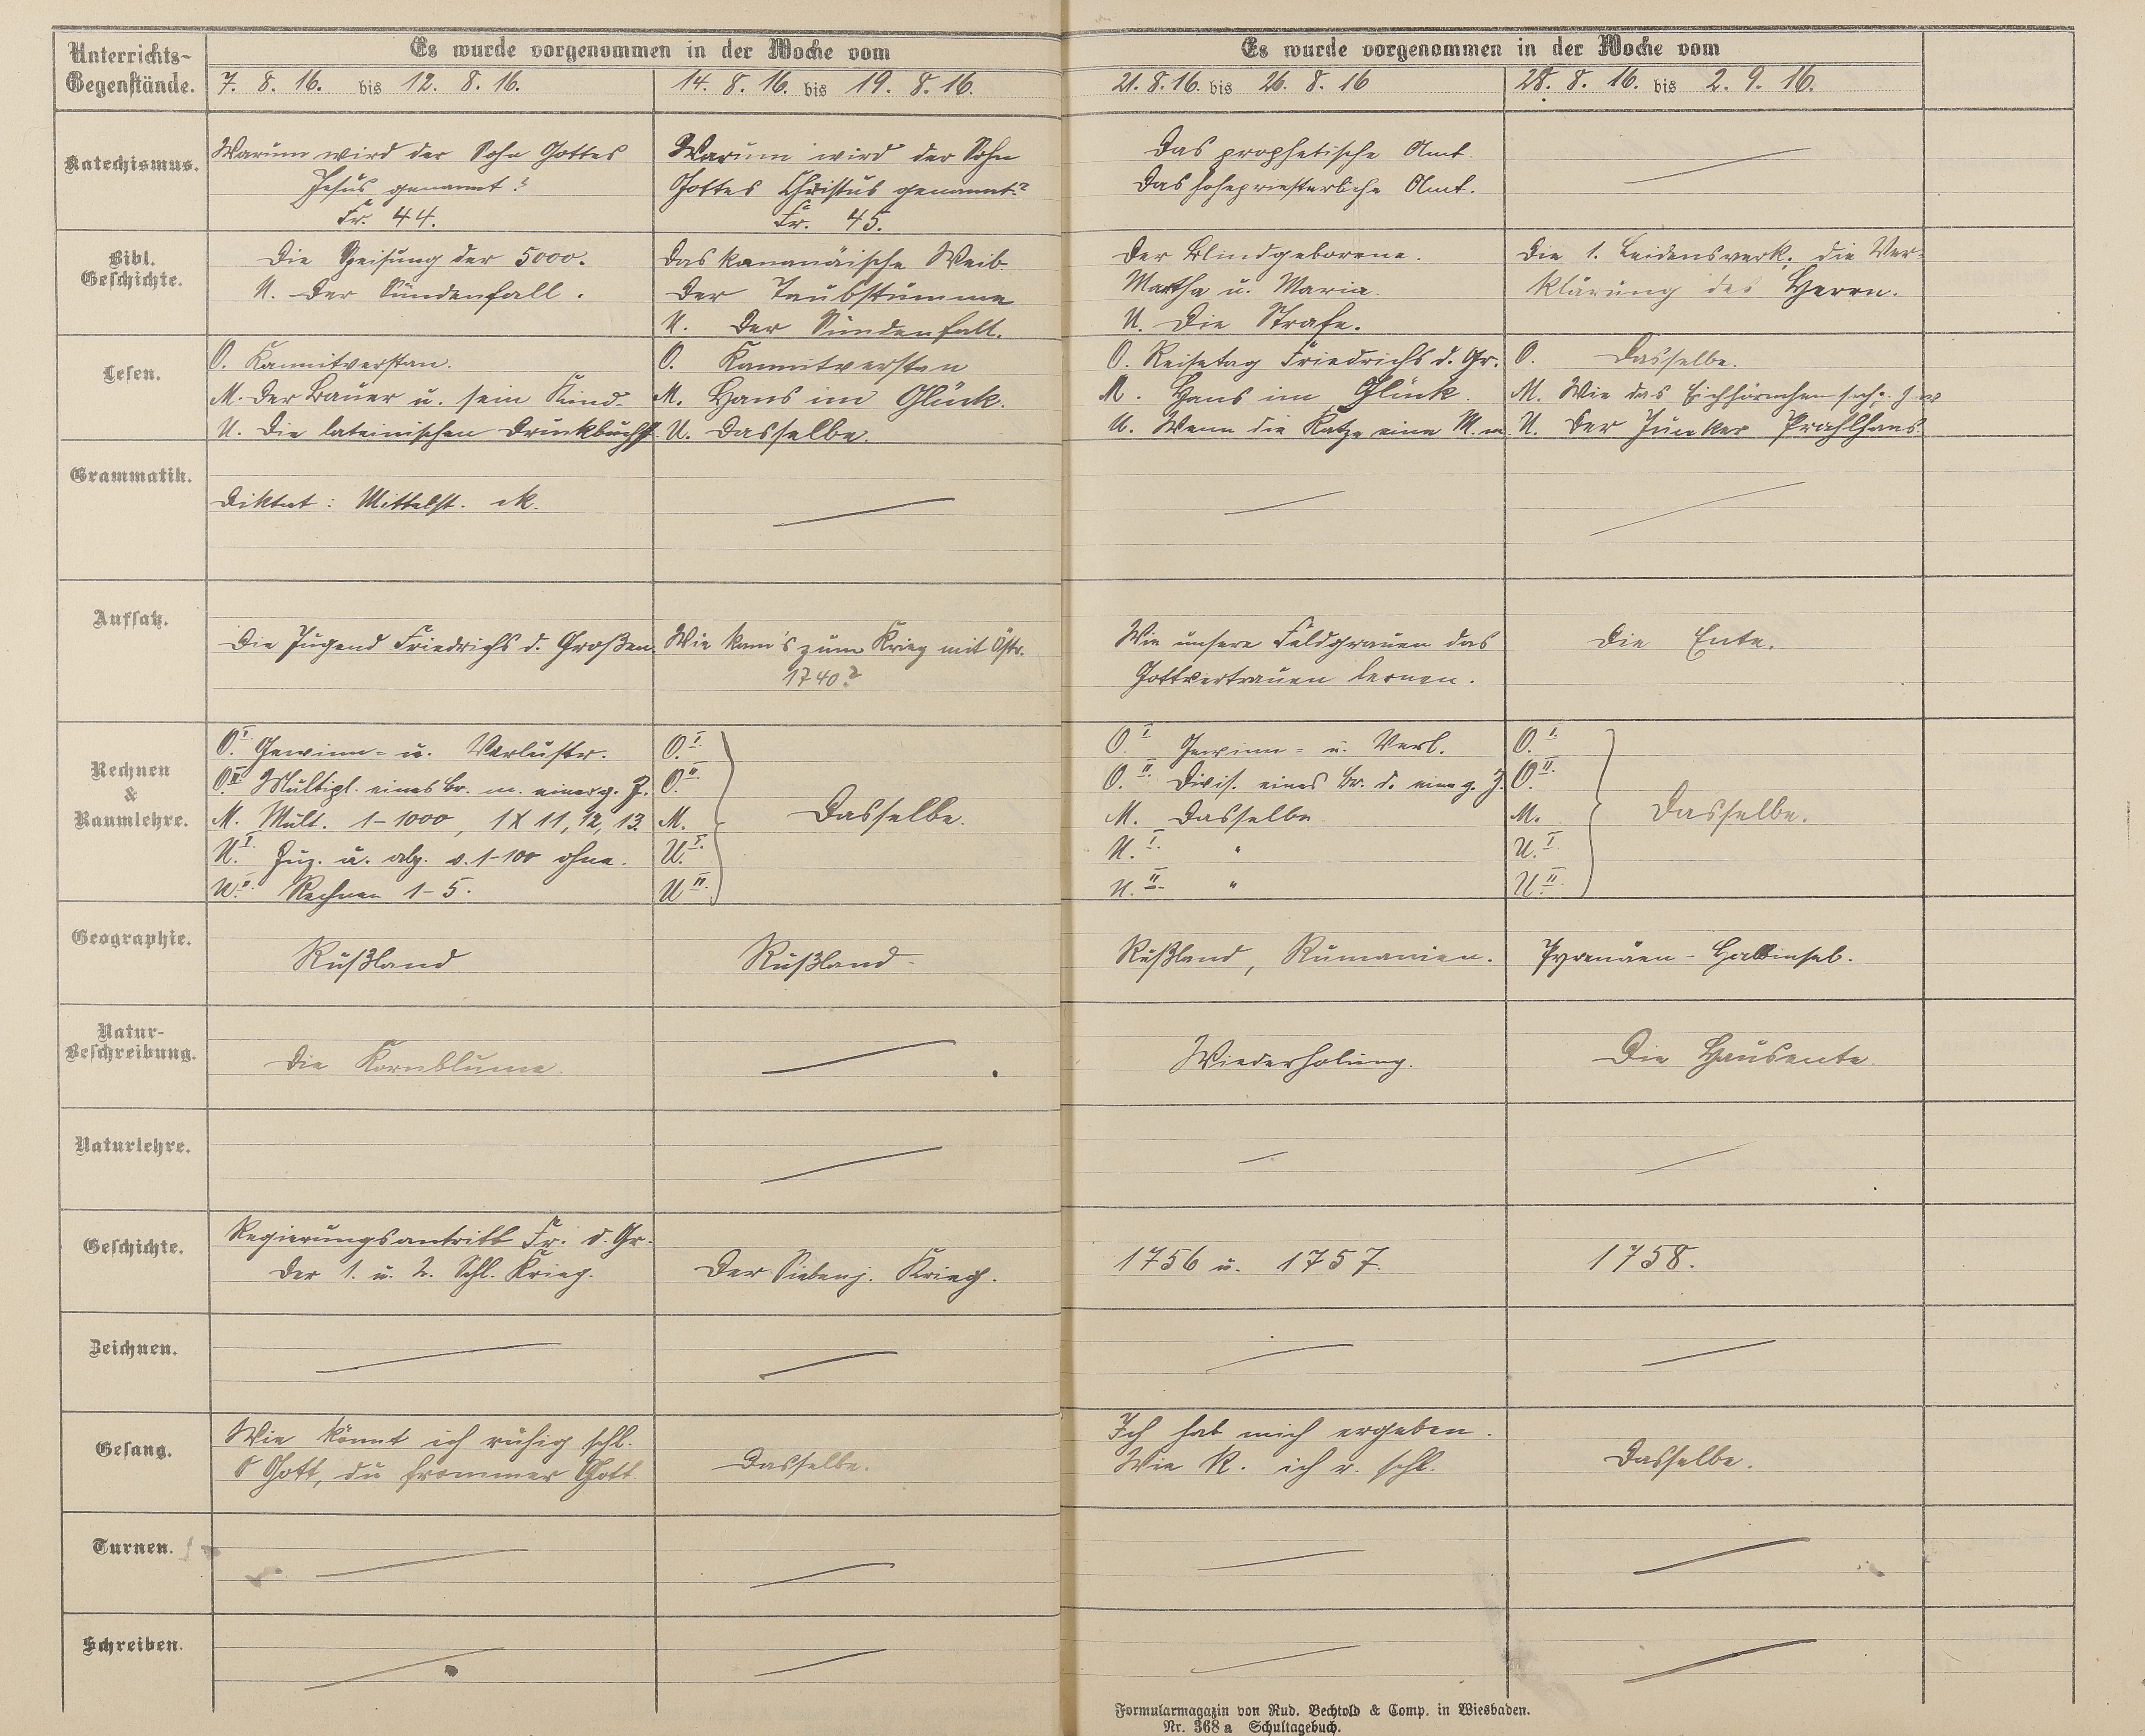 Unterrichts-
Gegenstände.
Es wurde vorgenommen in der Woche vom
7. 8. 16. bis 12. 8. 16.
14. 8. 16. bis 19. 8. 16.
Es wurde vorgenommen in der Woche vom
21. 8. 16. bis 26. 8. 16
28. 8. 16. bis 2. 9. 16.
Katechismus.
Warum wird der Sohn Gottes
Jesus genannt?
Fr. 44.
Warum wird der Sohn
Gottes Christus genannt?
Fr. 45.
Das prophetische Amt.
Das hohepriesterliche Amt.
Bibl.
Geschichte.
Die Speisung der 5000.
U. Der Sündenfall.
Das kananäische Weib.
Der Taubstumme
U. Der Sündenfall.
Der Blindgeborene.
Martha u. Maria.
U. Die Strafe.
Die 1. Leidensverk. die Ver-
klärung des Herrn.
Lesen.
O. Kannitverstan.
M. Der Bauer u. sein Kind.
U. Die lateinischen Druckbuchst.
O. Kannitverstan
M. Hans im Glück.
U. Dasselbe.
O. Reisetag Friedrichs d. Gr.
M. Hans im Glück.
U. Wenn die Katze eine M. w.
O. Dasselbe.
M. Wie das Eichhörnchen
U. Der Junker Prahlhans.
Grammatik.
Diktat: Mittelst. ck.
Aufsatz.
Die Jugend Friedrichs d. Großen.
Wie kam's zum Krieg mit Östr.
1740?
Wie unsere Feldgrauen das
Gottvertrauen lernen.
Die Ente.
Rechnen
&
Raumlehre.
O. I. Gewinn- u. Verlustr.
O. II. Multipl. eines Br. m. einer g. Z.
M. Mult. 1-1000, 1 X 11, 12, 13.
U. I. Zuz. u. abz. v. 1-100 ohne.
U. II. Rechnen 1-5.
O. I.
O. II.
M.
U. I.
U. II.
Dasselbe.
O. I. Gewinn- u. Verl.
O. II. Divis. eines Br. d. eine g. Z.
M. Dasselbe
U. I. "
U. II. "
O. I.
O. II.
M.
U. I.
U. II.
Dasselbe.
Geographie.
Rußland
Rußland.
Rußland, Rumänien.
Pyrenäen-Halbinsel.
Natur-
Beschreibung.
Die Kornblume.
Wiederholung.
Die Hausente.
Naturlehre.
Geschichte.
Regierungsantritt Fr. d. Gr.
Der 1. u. 2. Schl. Krieg.
Der Siebenj. Krieg.
1756 u. 1757.
1758.
Zeichnen.
Gesang.
Wie könnt ich ruhig schl.
O Gott, du frommer Gott.
Dasselbe.
Ich hab mich ergeben.
Wie k. ich r. schl.
Dasselbe.
Turnen.
Schreiben.
Formularmagazin von Rud. Bechtold & Comp. in Wiesbaden.
Nr. 368 a Schultagebuch.